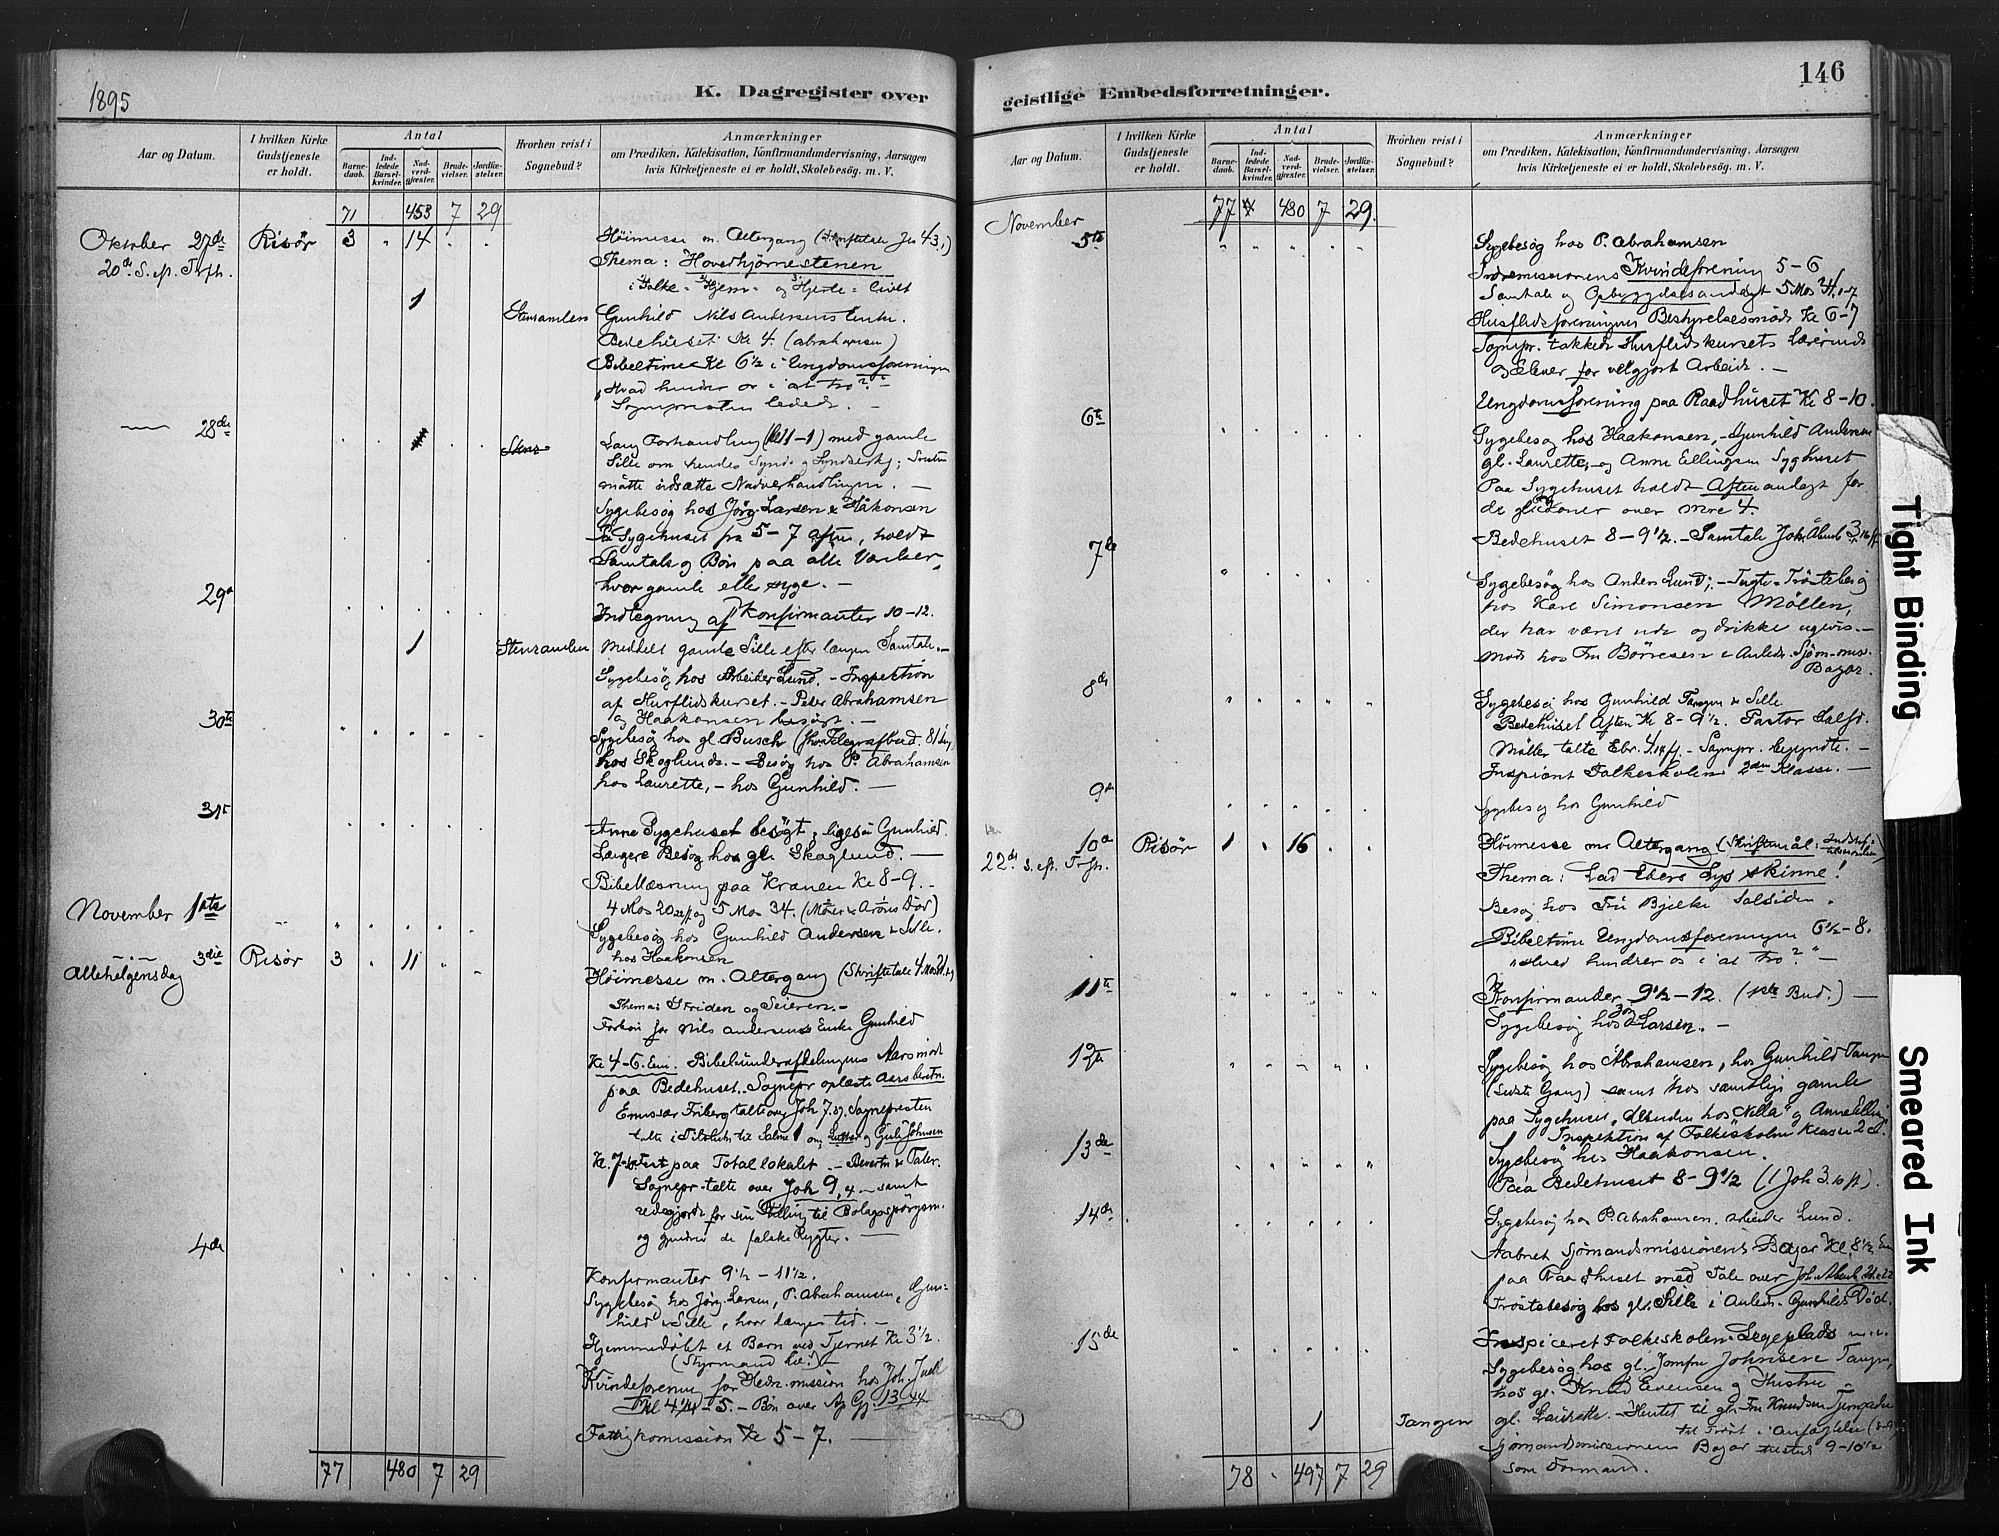 1895
K. Dagregister over
Aar og Datum.
I hvilken Kirke Gudstjeneste er holdt.
Antal
Barnedaab.
Indledede Barselkvinder.
Nadverdgjæster.
Brudevielser.
Jordfæstelser.
Hvorhen reist i Sognebud?
Anmærkninger
om Prædiken, Katekisation, Konfirmandundervisning, Aarsagen
hvis Kirketjeneste ei er holdt, Skolebesøg. m. V.
71 453 7 29
Oktober 27de Risör 3 " 14 Höimesse m. Altergang (Skriftetale Jes 43,1)
20de S. eft. Trfh. Thema: Hovedhjörnestenen
i Folke- Hjem- og Hjerte-livet
1 Stensamlen Gunhild Nils Andersens Enke.
Bedehuset Kl 4. (Abrahamsen)
Bibeltime Kl 6½ i Ungdomsforeningen
"Hvad hindrer os i at tro?"
Sognepresten ledede. —
28de Lang Forhandling (Kl 11-1) med gamle
Sille om hendes Synd og
måtte udsætte Nadverhandlingen. —
Sygebesög hos Jörg. Larsen & Håkonsen
På Sygehuset fra 5-7 aften, holdt
Samtale og Bön paa alle Værelser,
hvor gamle eller syge. —
29de Indtegning af Konfirmanter 10-12.
1 Stensamlen Meddelt gamle Sille efter længere Samtale. —
Sygebesög hos Arbeider Lund. - Inspektion
af Husflidskurset. - Peder Abrahamsen
og Haakonsen besögt. —
30te Sygebesög hos gl Busch (fhv. Telegrafbud. 81 år)
hos Skoglund. - Besög hos P. Abrahamsen
hos Laurette, - hos Gunhild. —
31te Anne Sygehuset besögt; ligeså Gunhild.
Længere Besög hos gl. Skoglund. —
Bibellæsning paa Kranen Kl 8-9. -
4 Mos 20 og 5 Mos 34. (Moses & Arons Död)
November 1ste Sygebesög hos Gunhild Andersen & Sille.
hos Haakonsen
3die Risör 3 " 11 Höimesse m. Altergang (Skriftetale 4 Mos 21
Allehelgensdag Thema: Striden og Seieren. -
Forbön for Nils Andersens Enke Gunhild
Kl 4-6. Em. Bibelkundeafdelingens Aarsmöde
paa Bedehuset. Sognepr oplæste Aarsberetn.
Emissær Friberg talte over Joh 7.37, Sognepresten
talte i Tilslutn. til Salme 1 om Luther og Gisle Johnson
Kl. 7 Fest paa Totallokalet. - Beretn & Taler.
Sognepr. talte over Joh 9,4 - samt
redegjorde for sin Stilling til Bolagsspörgsm.
og gjendrev de falske Rygter. —
4de Konfirmanter 9½ - 11½.
Sygebesög hos Jörg. Larsen, P. Abrahamsen, Gun-
hild & Sille, hvor længere tid. -
Hjemmedöbt et Barn ved Tjernet Kl 3½.
(Styrmand
Kvindeforening for Hedn.mission hos Joh. Juell
Kl 4¼ - 5. - Bön over Ap Gj. 13
Fattigkomission Kl 5-7. —
77 480 7 29
geistlige Embedsforretninger.
146
Aar og Datum.
I hvilken Kirke Gudstjeneste er holdt.
Antal
Barnedaab.
Indledede Barselkvinder.
Nadverdgjæster.
Brudevielser.
Jordfæstelser.
Hvorhen reist i Sognebud?
Anmærkninger
om Prædiken, Katekisation, Konfirmandundervisning, Aarsagen
hvis Kirketjeneste ei er holdt, Skolebesøg. m. V.
77 480 7 29.
November
5te Sygebesög hos P. Abrahamsen
Indremissionens Kvindeforening 5-6
Samtale og Opbyggelsesandagt 5 Mos 34, 1-7
Husflidsforeningens Bestyrelsesmöde Kl 6-7
Sognepr. takkede Husflidskursets Lærerinde
og Elever for velgjort Arbeide. —
Ungdomsforening paa Raadhuset Kl 8-10.
6te Sygebesög hos Haakonsen, - Gunhild Andersen
gl. Laurette, og Anne Ellingsen Syghuset
Paa Sygehuset holdt Aftenandagt for
de gl. koner over Mrc 4.
Bedehuset 8-9½. - Samtale Joh Åbenb 3
7de Sygebesög hos Anders Lund; - Tugte-Trösteberg
hos Karl Simonsen Möllen,
der har været ude og drikke ugevis. -
Möde hos Fru Börresen i Anledn. Sjöm.miss.
Bazar.
8de Sygebesög hos Gunhild Tangen & Sille
Bedehuset Aften Kl 8-9½. Pastor
Möller talte Ebr. 4 - Sognepr. begyndte. -
Inspicert Folkeskolens 2den Klasse. —
9de Sygebesög hos Gunhild
10de Risör 1 " 16 Höimesse m. Altergang (Skriftemål:
22de S. eft. Trfh. Thema: Lad Eders Lys skinne!
Besög hos Fru Bjelke Solsiden.
Bibeltime Ungdomsforeningen 6½-8.
"Hvad hindrer os i at tro?" —
11te Konfirmander 9½-12. (1ste Bud.) —
Sygebesög hos Jörg Larsen. -
12te Sygebesög hos Abrahamsen, hos Gunhild Tangen
(sidste Gang) samt hos samtlige gamle
paa Sygehuset, desuden hos "Nilla" og Anne Elling
Inspektion af Folkeskolen Klasse 2
13de Sygebesög hos Haakonsen.
Paa Bedehuset 8-9½ (1 Joh 3.10 ff).
14de Sygebesög hos P. Abrahamsen. arbeider Lund.
Aabnet Sjömandsmissionens Bazar Kl. 8½ Em
paa Raadhuset med Tale over Joh. Åbenb. 21 & 22
Tröstebesög hos gl. Sille i Anledn. Gunhilds Död.
15de Inspiceret Folkeskolen Legeplads m. v.
Sygebesög hos gl. Jomfru Johnsine Tangen,
hos gl. Knud Evensen og Hustru -
1 Tangen gl. Laurette. - Hentet til gl. Fru Knudsen
til Tröst i Anfægtelse
Sjömandsmissionens Bazar 9-10½
som Formand.
78 " 497 7 29
Tight Binding
Smeared Ink